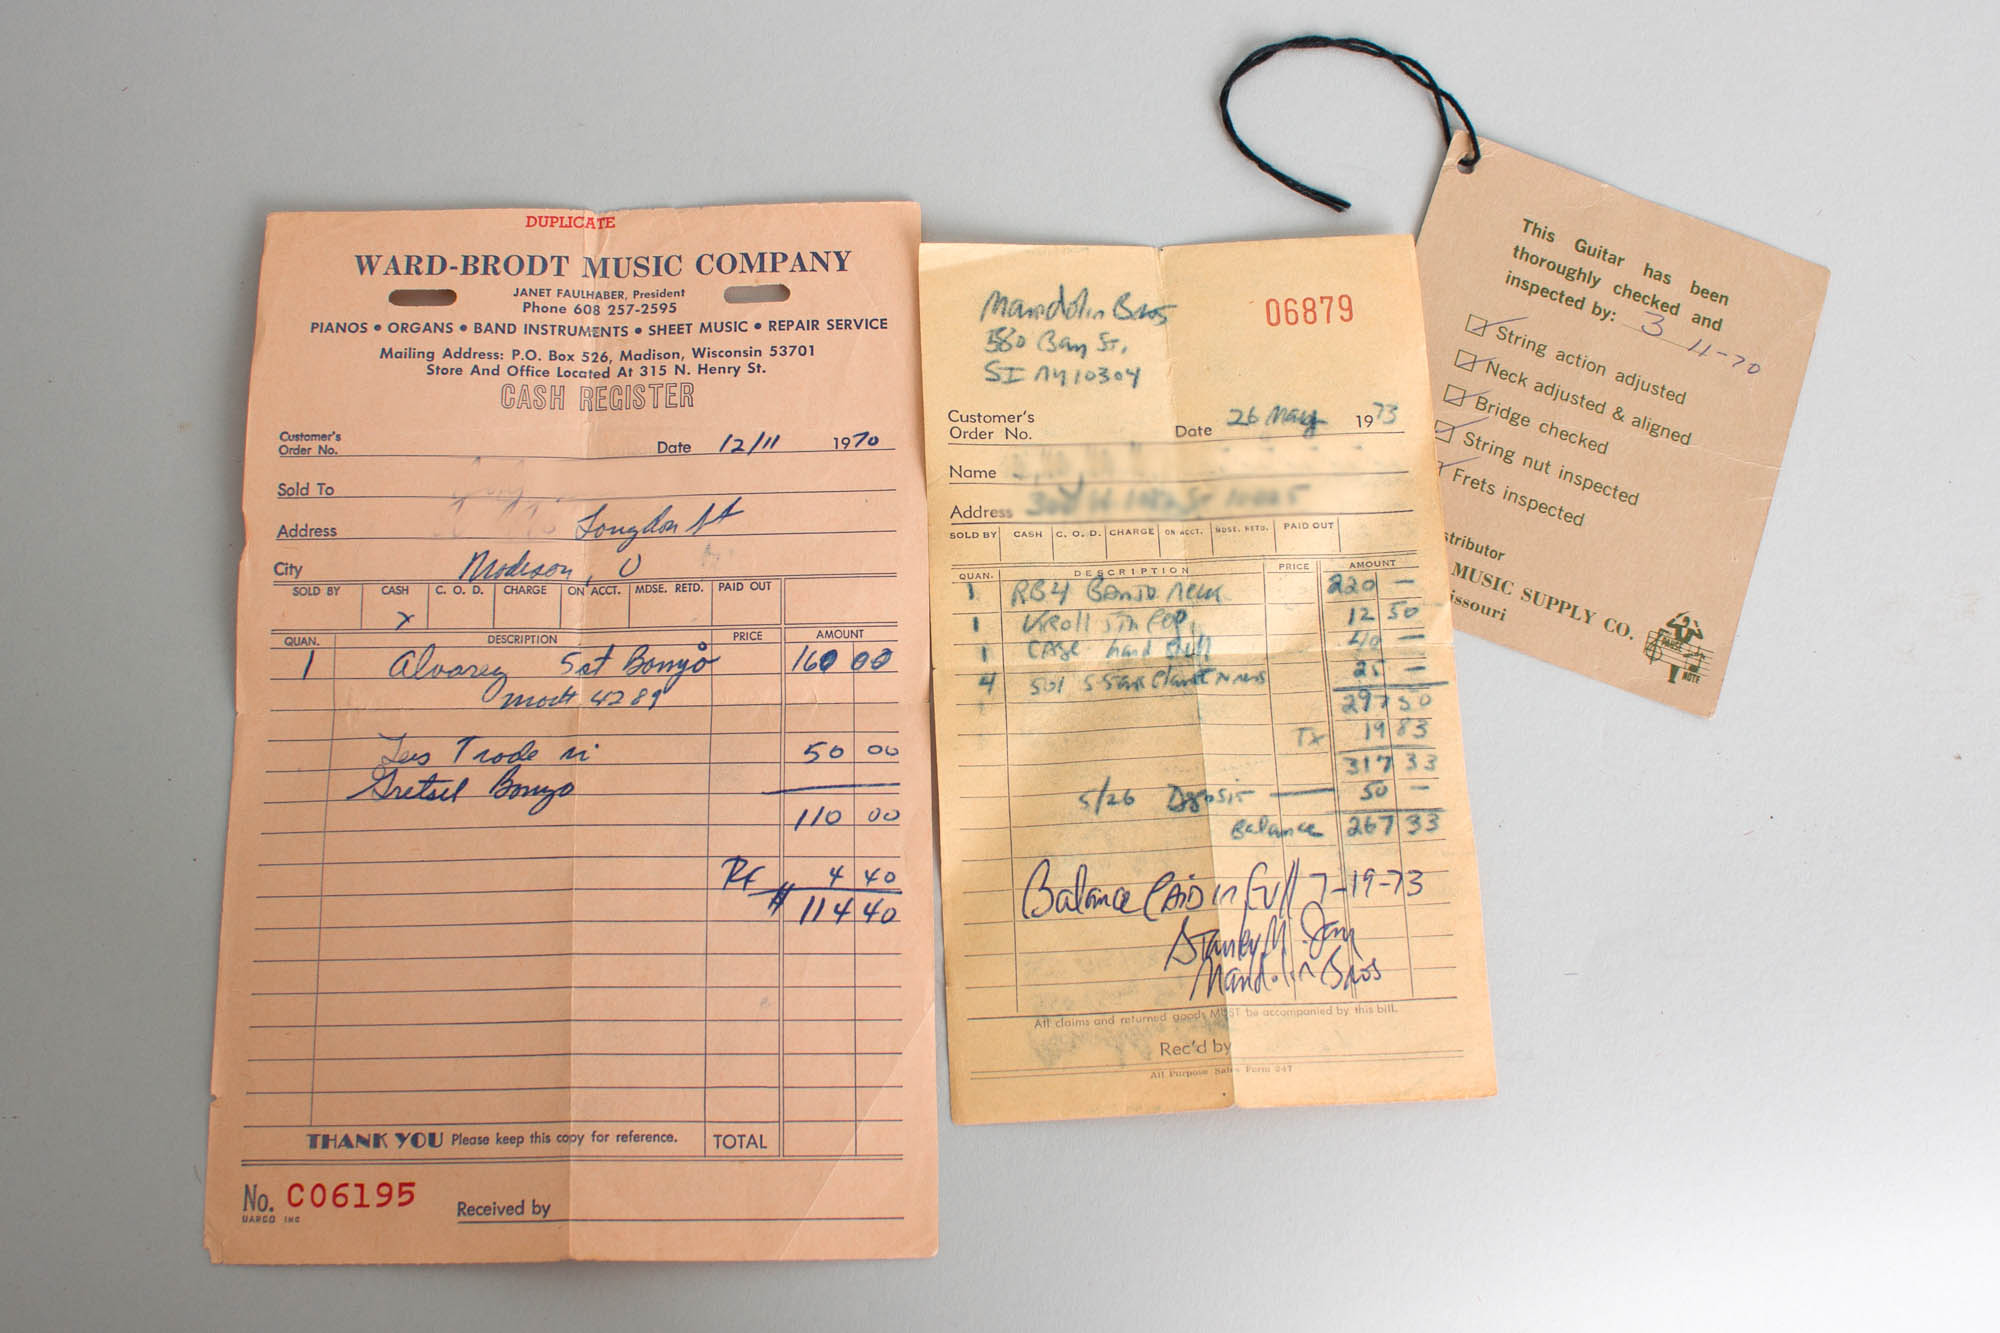 DUPLICATE
WARD-BRODT MUSIC COMPANY
JANET FAULHABER, President
Phone 608 257-2595
PIANOS • ORGANS • BAND INSTRUMENTS • SHEET MUSIC • REPAIR SERVICE
Mailing Address: P.O. Box 526, Madison, Wisconsin 53701
Store And Office Located At 315 N. Henry St.
CASH REGISTER
Customer's
Order No. Date 12/11 1970
Sold To
Address Langdon St
City Madison,
SOLD BY CASH C. O. D. CHARGE ON ACCT. MDSE. RETD. PAID OUT
x
QUAN. DESCRIPTION PRICE AMOUNT
1 Alvarez 5 st Banjo 160 00
4289
Less Trade in 50 00
Gretsch Banjo
110 00
4 40
$ 114 40
THANK YOU Please keep this copy for reference. TOTAL
No. C06195
Received by
Mandolin Bros
580 Bay St.
SI NY 10304
06879
Customer's
Order No. Date 26 May 1973
Name
Address
SOLD BY CASH C. O. D. CHARGE ON ACCT. MDSE. RETD. PAID OUT
QUAN. DESCRIPTION PRICE AMOUNT
1 RB4 Banjo neck 220 —
1 Kroll 5th peg 12 50
1 Case hard shell 40 —
4 5 Planet 25 —
297 50
Tx 19 83
317 33
5/26 Deposit — 50 —
Balance 267 33
Balance Paid in Full 7-19-73
Stanley M. Jay
Mandolin Bros
All claims and returned goods MUST be accompanied by this bill.
Rec'd by
All Purpose Sales Form 247
This Guitar has been
thoroughly checked and
inspected by: 3
11-70
String action adjusted
Neck adjusted & aligned
Bridge checked
String nut inspected
Frets inspected
stributor
MUSIC SUPPLY CO.
issouri
NOTE